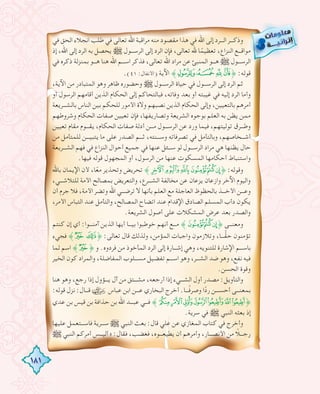 معلومات إثرائية
وذكر الرد إلى الله في هذا مقصود منه مراقبة الله تعالى في طلب انجلاء الحق في
مواقع النزاع، تعظيمًا لله تعالى، فإن الرد إلى الرسول ﷺ يحصل به الرد إلى الله، إذ
الرسول ﷺ هو المنبئ عن مراد الله تعالى، فذكر اسم الله هنا هو بمنزلة ذكره في
قوله: ﴿فَأَنَّ لِلَّهِ خُمُسَهُ وَلِلرَّسُولِ﴾ الآية (الأنفال: ٤١).
ثم الرد إلى الرسول في حياة الرسول ﷺ وحضوره ظاهر وهو المتبادر من الآية،
وأما الرد إليه في غيبته أو بعد وفاته، فبالتحاكم إلى الحكام الذين أقامهم الرسول أو
أمرهم بالتعيين، وإلى الحكام الذين نصبهم ولاة الأمور للحكم بين الناس بالشريعة
ممن يظن به العلم بوجوه الشريعة وتصاريفها، فإن تعيين صفات الحكام وشروطهم
وطرق توليتهم، فيما ورد عن الرسول من أدلة صفات الحكام، يقوم مقام تعيين
أشخاصهم، وبالتأمل في تصرفاته وسنته، ثم الصدر على ما يتبين للمتأمل من
حال يظنها هي مراد الرسول لو سئل عنها في جميع أحوال النزاع في فهم الشريعة
واستنباط أحكامها المسكوت عنها من الرسول، أو المجهول قوله فيها.
وقوله: ﴿إِن كُنتُمْ تُؤْمِنُونَ بِاللَّهِ وَالْيَوْمِ الْآخِرِ﴾ تحريض وتحذير معًا، لأن الإيمان بالله
واليوم الآخر وازعان يزعان عن مخالفة الشرع، والتعريض بمصالح الأمة للتلاشي،
وعن الأخذ بالحظوظ العاجلة مع العلم بأنها لا ترضي الله وتضر الأمة، فلا جرم أن
يكون دأب المسلم الصادق الإقدام عند اتضاح المصالح، والتأمل عند التباس الأمر،
والصدر بعد عرض المشكلات على أصول الشريعة.
ومعنى ﴿إِن كُنتُمْ تُؤْمِنُونَ﴾ مع أنهم خوطبوا بيا أيها الذين آمنوا: أي إن كنتم
تؤمنون حقًّا، وتلازمون واجبات المؤمن، ولذلك قال تعالى: ﴿ذَٰلِكَ خَيْرٌ﴾ فجيء
باسم الإشارة للتنويه، وهي إشارة إلى الرد المأخوذ من فردوه. و﴿خَيْرٌ﴾ اسم لما
فيه نفع، وهو ضد الشر، وهو اسم تفضيل مسلوب المفاضلة، والمراد كون الخير
وقوة الحسن.
والتأويل: مصدر أول الشيء إذا أرجعه، مشتق من آل يؤول إذا رجع، وهو هنا
بمعنى أحسن ردًّا وصرفًا. أخرج البخاري عن ابن عباس قال: نزل قوله:
﴿أَطِيعُوا اللَّهَ وَأَطِيعُوا الرَّسُولَ وَأُولِي الْأَمْرِ مِنكُمْ﴾ في عبد الله بن حذافة بن قيس بن عدي
إذ بعثه النبي ﷺ في سرية.
وأخرج في كتاب المغازي عن علي قال: بعث النبي ﷺ سرية فاستعمل عليها
رجلاً من الأنصار، وأمرهم أن يطيعوه، فغضب، فقال: أليس أمركم النبي ﷺ
١٨١